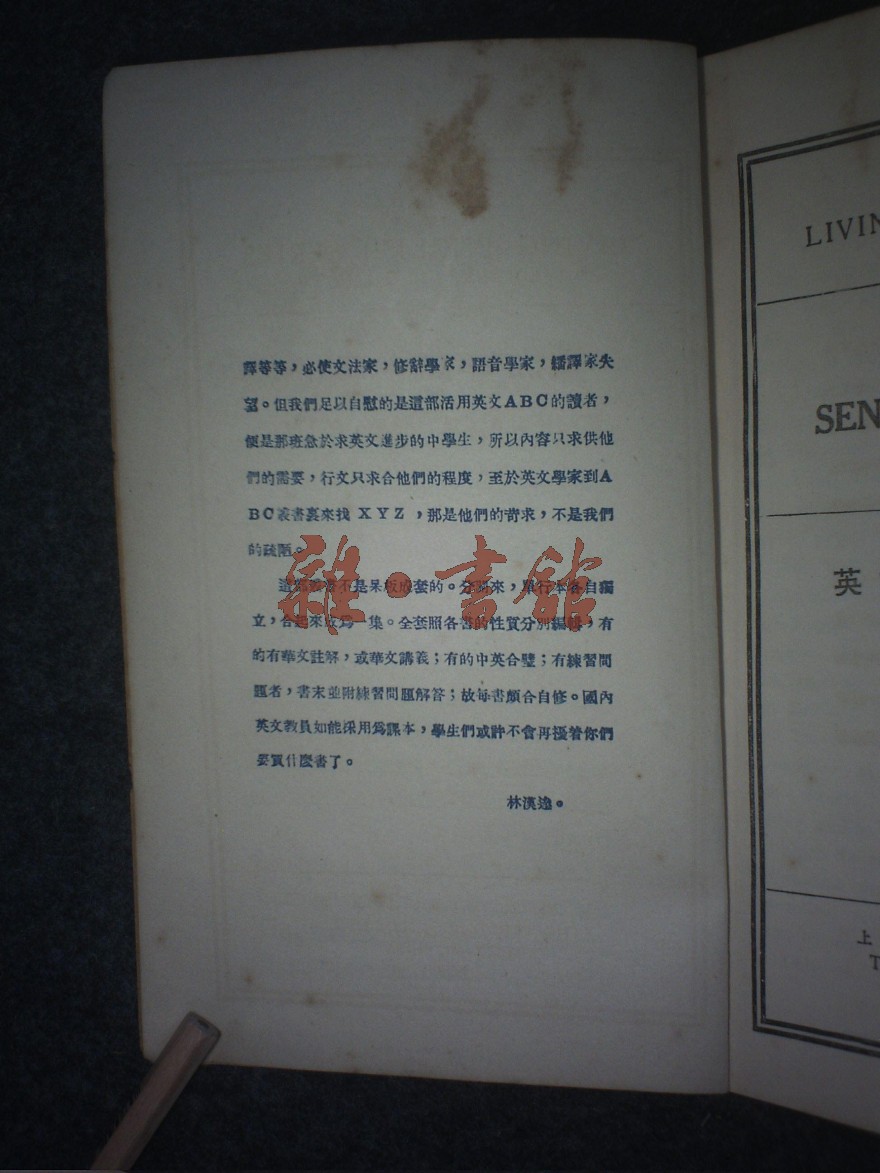 譯等等，必使文法家，修辭學家，語音學家，繙譯家失
望。但我們足以自慰的是這部活用英文ABC的讀者，
便是那班急於求英文進步的中學生，所以內容只求供他
們的需要，行文只求合他們的程度，至於英文學家到A
BC叢書裏來找 XYZ，那是他們的苛求，不是我們
的疏陋。
這部叢書不是呆板成套的。分開來，單行本各自獨
立，合起來成爲一集。全套照各書的性質分別編輯，有
的有華文註解，或華文講義；有的中英合璧；有練習問
題者，書末並附練習問題解答；故每書頗合自修。國內
英文教員如能採用爲課本，學生們或許不會再擾着你們
要買什麼書了。
林漢達。
雜·書館
LIVIN
SEN
英
上
T